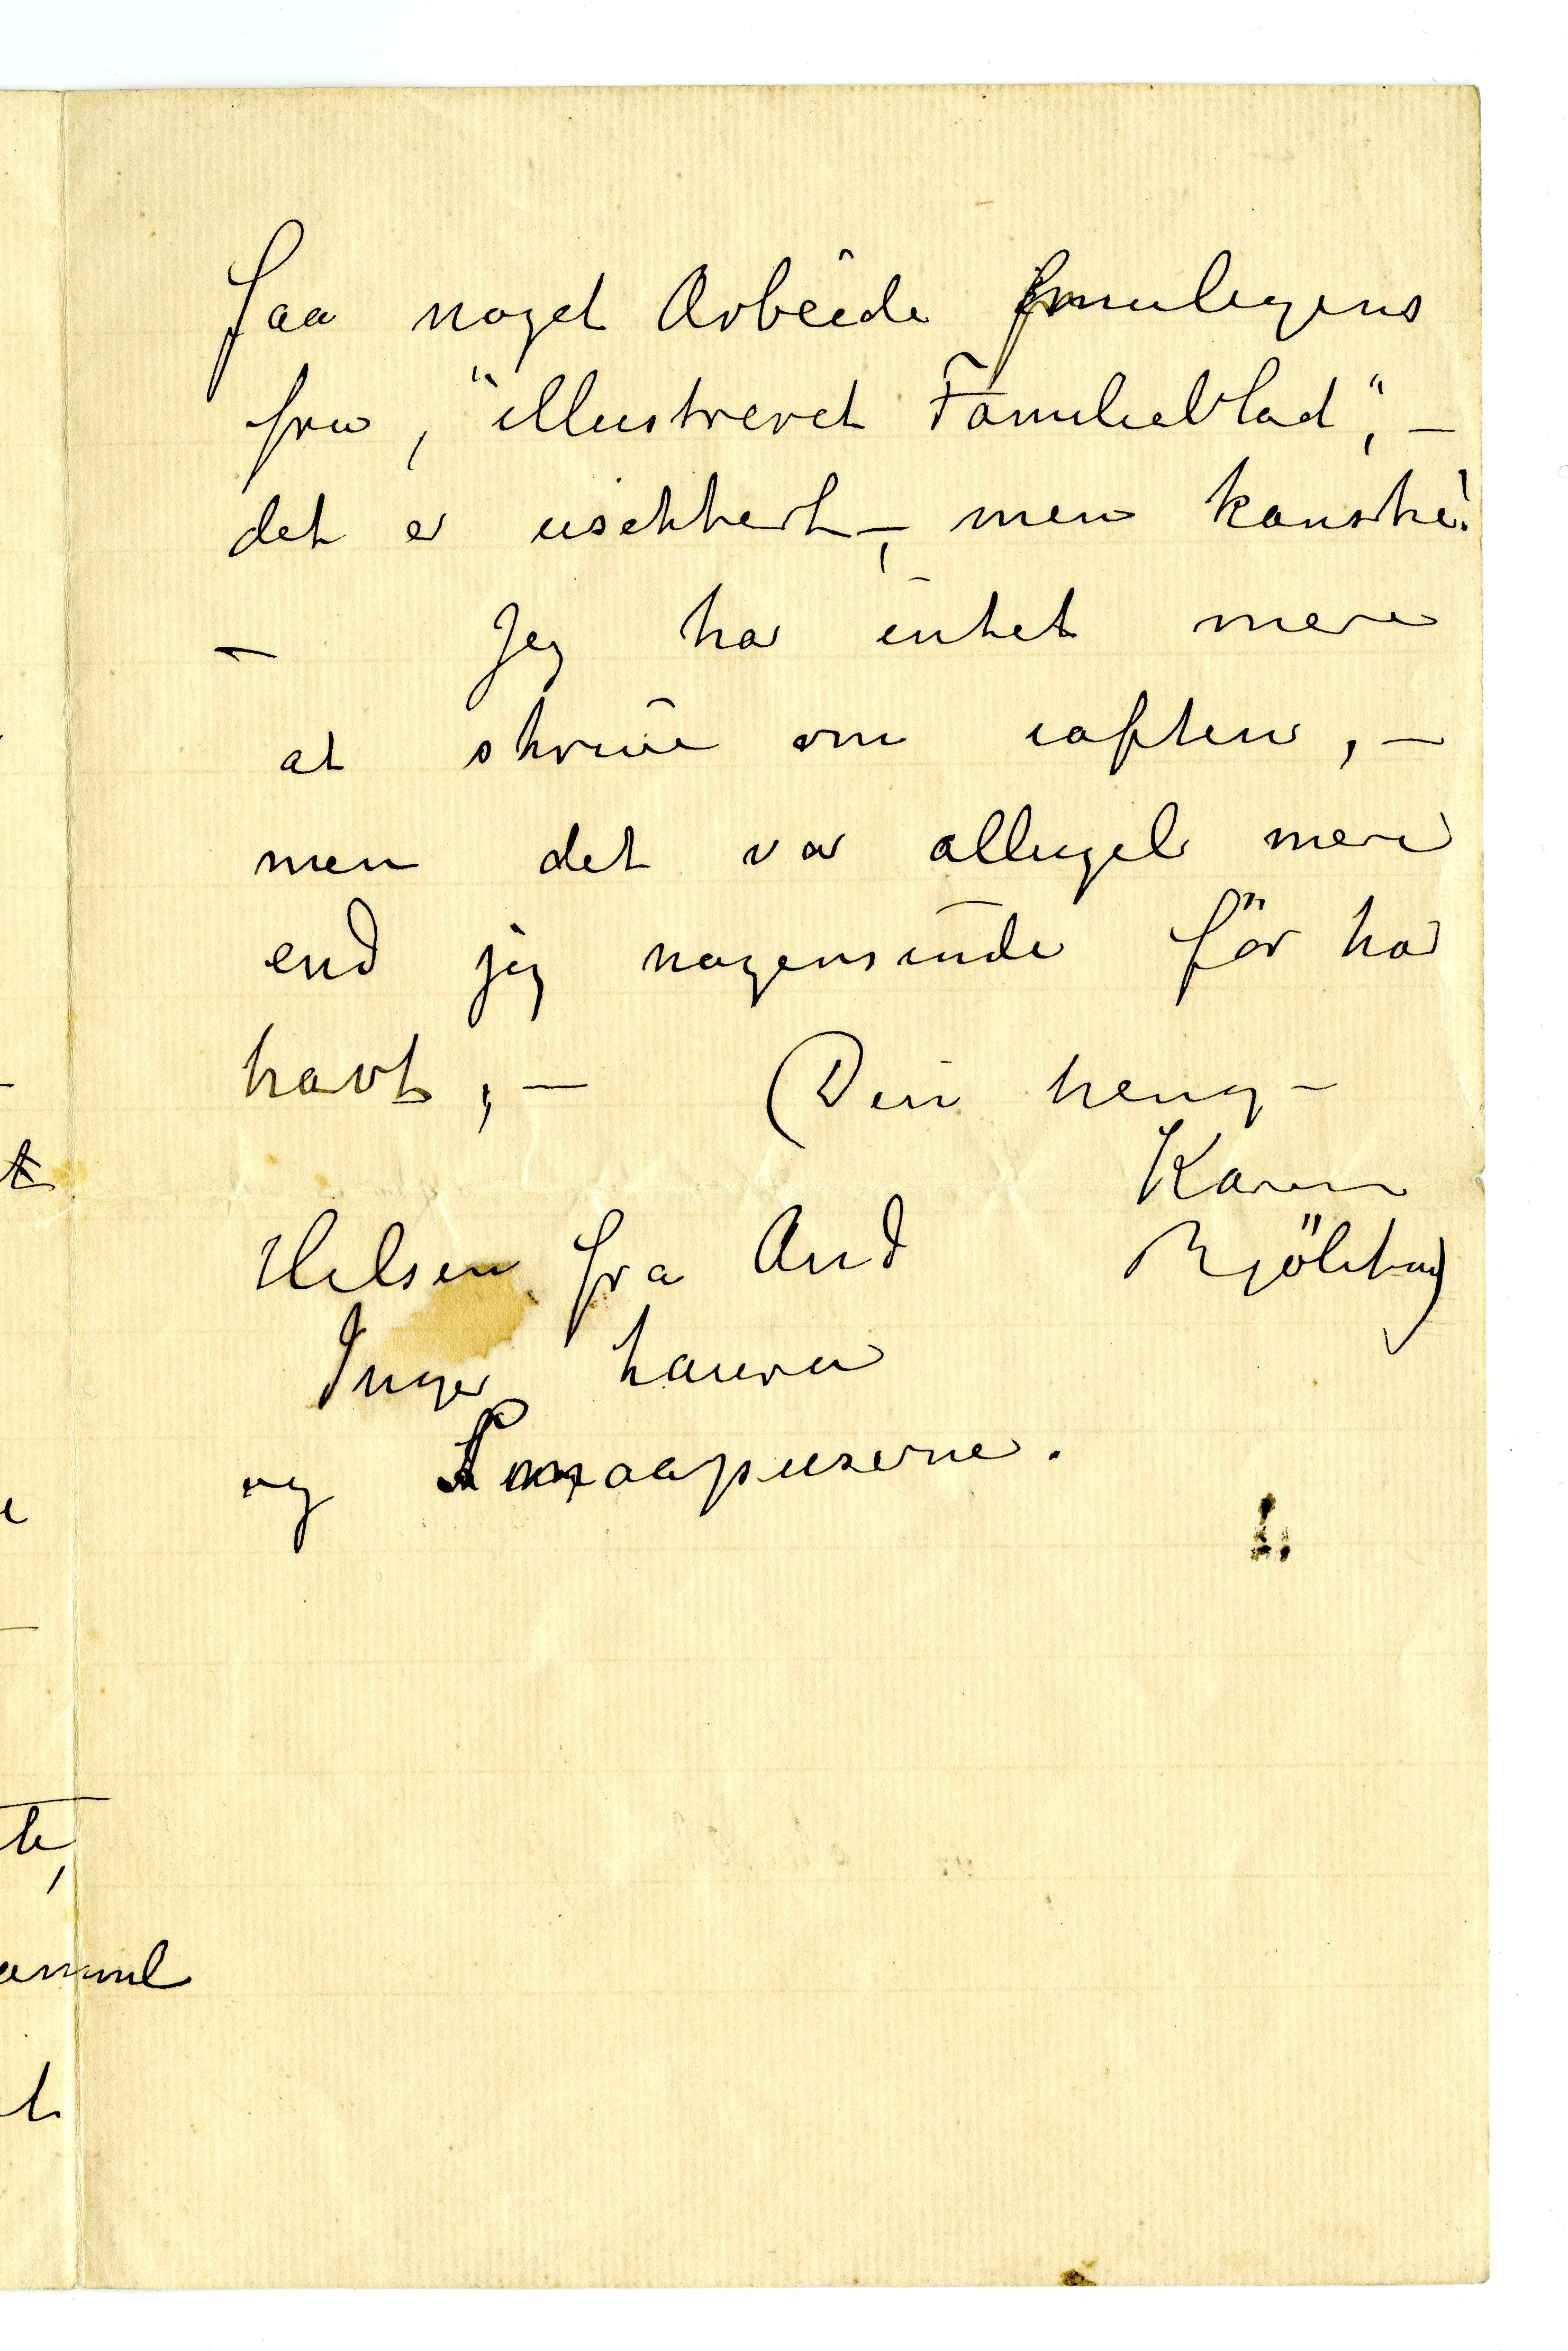 faa noget Arbeide muligens
fra, "illustreret Familieblad", –
det er usekkert –, men kanske!
– Jeg har intet mere
at skrive om iaften, –
men det var alligel mere
end jeg nogensinde før har
havt, – Din heng –
Karen
Bjølstad
Hilsen fra And
Inger Laura
og Smaapuserne.